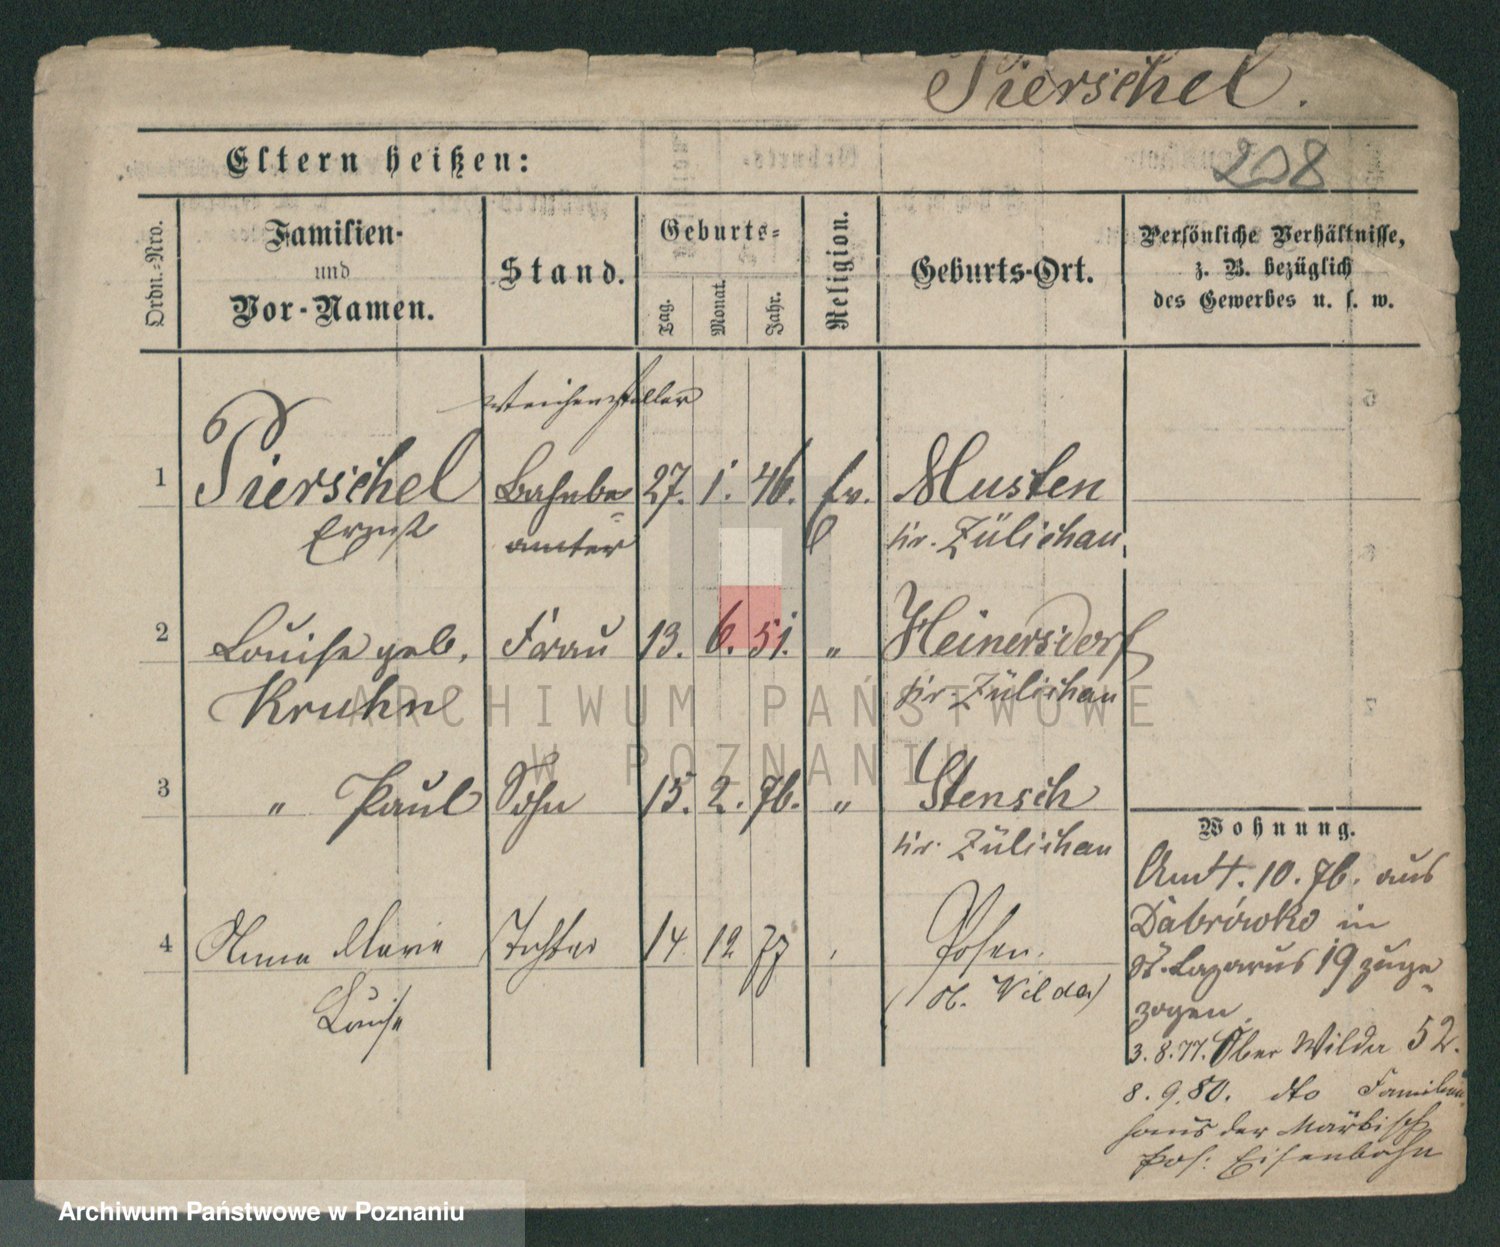 Pierschel.
208
Eltern heißen:
Ordn.-Nro.
Familien-
und
Vor-Namen.
Stand.
Geburts-
Tag.
Monat.
Jahr.
Religion.
Geburts-Ort.
Persönliche Verhältnisse,
z. B. bezüglich
des Gewerbes u. s. w.
Weichensteller
1 Pierschel Bahnbe= 27. 1. 46. ev. Musten
Ernst amter Kr. Züllichau
2 Louise geb. Frau 13. 6. 51. „ Heinersdorf
Kruhn Kr. Züllichau
3 „ Paul Sohn 15. 2. 76. „ Stensch
Kr. Züllichau
4 Anna Marie Tochter 14 12 77 Posen.
Louise (O. Wilda)
Wohnung.
Am 4. 10. 76. aus
Dabrówko in
St. Lazarus 19 zuge=
zogen.
3. 8. 77. Ober Wilda 52.
8. 9. 80. dto Familien
haus der Märkisch
Pos: Eisenbahn
ARCHIWUM PAŃSTWOWE
W POZNANIU
Archiwum Państwowe w Poznaniu